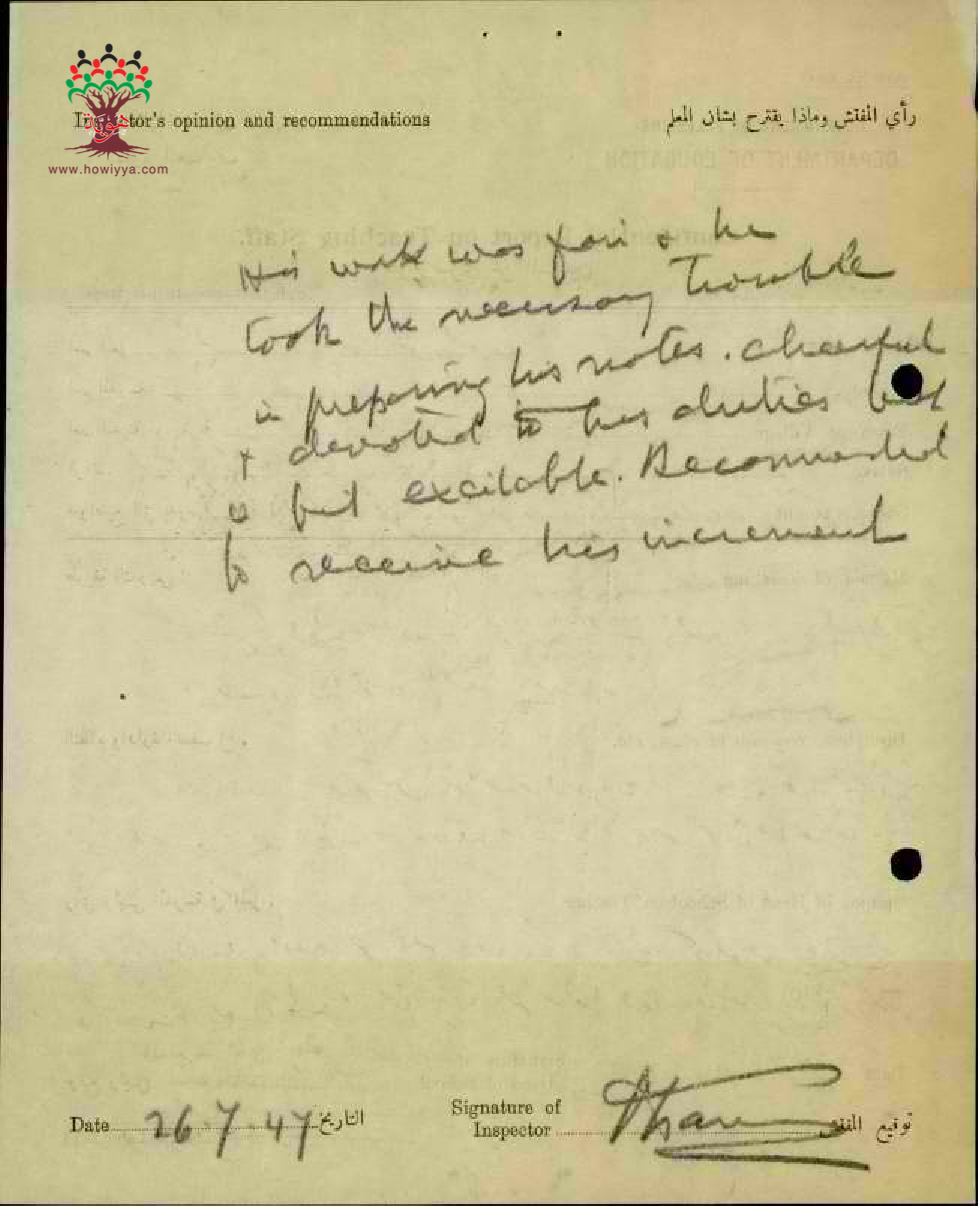 Inspector's opinion and recommendations
رأي المفتش وماذا يقترح بشأن المعلم
هوية
www.howiyya.com
His work was fair & he
took the necessary trouble
in preparing his notes. cheerful
& devoted to his duties but
but excitable. Recommended
to receive his increment
Date 26.7.47 التاريخ
Signature of
Inspector توقيع المفتش